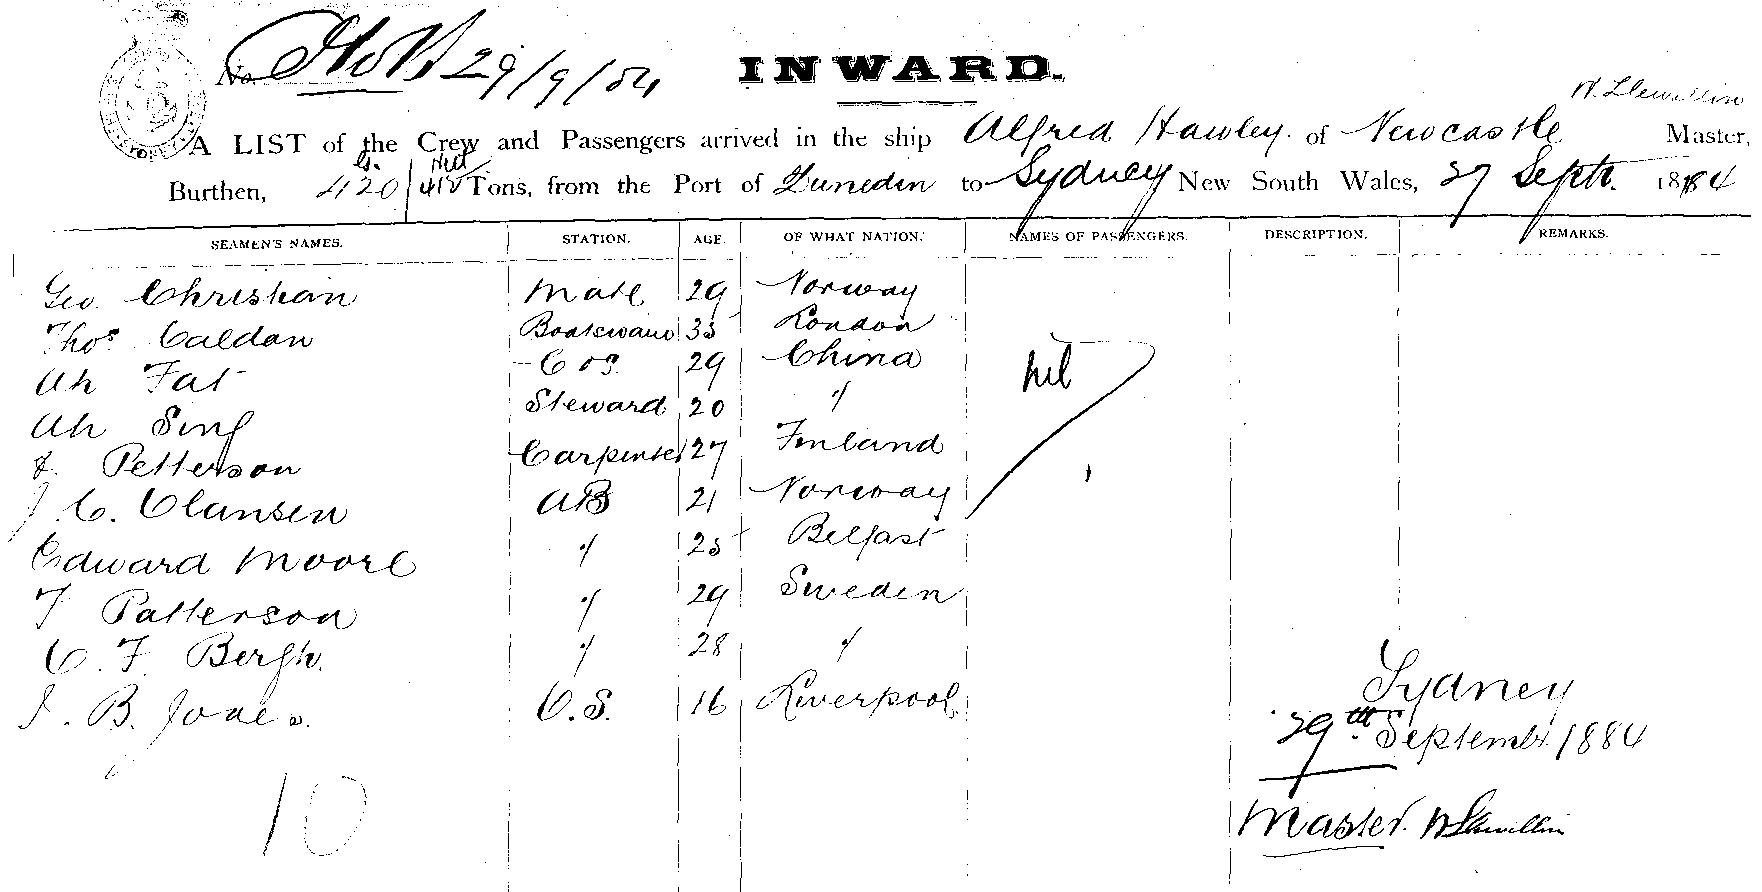 No. 29/9/84
INWARD.
W. Llewellin
A LIST of the Crew and Passengers arrived in the ship Alfred Hawley of Newcastle Master,
Burthen, 420 Tons, from the Port of Dunedin to Sydney New South Wales, 27 Septr. 1884
SEAMEN'S NAMES. STATION. AGE. OF WHAT NATION. NAMES OF PASSENGERS. DESCRIPTION. REMARKS.
Geo. Christian Mate 29 Norway
Thos Caldon Boatswain 35 London
Ah Fat 29 China nil
Ah Sing Steward 20 "
Petterson Carpenter 27 Finland
J. C. Clansen AB 21 Norway
Edward Moore " 25 Belfast
T Patterson " 29 Sweden
C. F. Bergh. " 28 "
J. B. Jones. O.S. 16 Liverpool
Sydney
29th September 1884
10
Master. W Llewellin